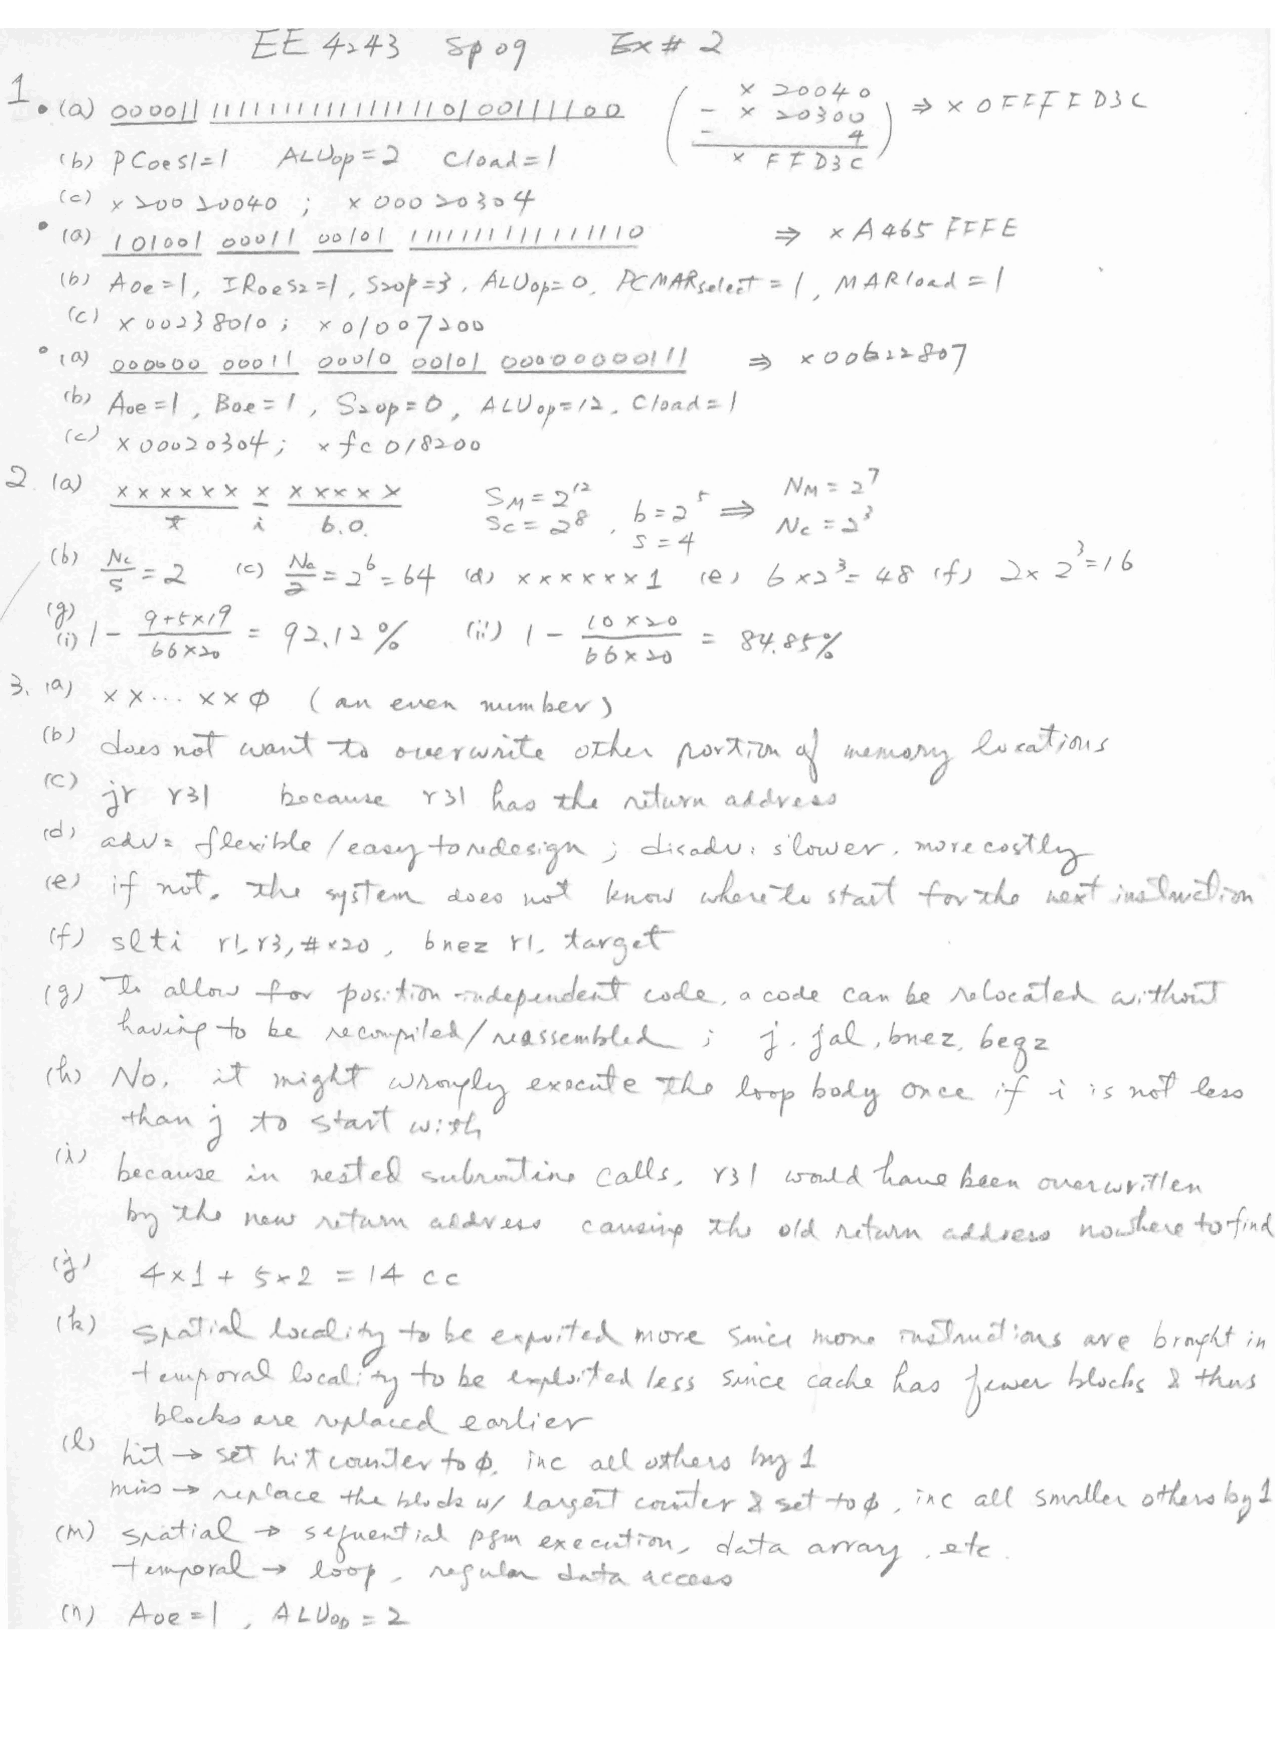 EE 4243 Sp 09 Ex # 2
1.
• (a) 000011 11111111111111110100111100 ( x 20040 - x 20300 - 4 x FFD3C ) ⇒ x 0FFFFD3C
(b) PCoeS1=1 ALUop=2 Cload=1
(c) x 20020040 ; x 00020304
• (a) 101001 00011 00101 1111111111111110 ⇒ x A465 FFFE
(b) Aoe=1, IRoeS2=1, S2op=3, ALUop=0, PCMARselect=1, MARload=1
(c) x 00238010 ; x 01007200
• (a) 000000 00011 00010 00101 00000000111 ⇒ x 00622807
(b) Aoe=1, Boe=1, S2op=0, ALUop=12, Cload=1
(c) x 00020304 ; x fc018200
2. (a) x x x x x x x x x x x x S_M = 2^12 , b = 2^5 ⇒ N_M = 2^7
t i b.o. S_C = 2^8 s = 4 N_C = 2^3
(b) Nc/s = 2 (c) /2 = 2^6 = 64 (d) x x x x x x 1 (e) 6 x 2^3 = 48 (f) 2 x 2^3 = 16
(g)
(i) 1 - (9+5x19)/(66x20) = 92.12% (ii) 1 - (10x20)/(66x20) = 84.85%
3. (a) x x ... x x ϕ (an even number)
(b) does not want to overwrite other portion of memory locations
(c) jr r31 because r31 has the return address
(d) adv: flexible / easy to redesign ; disadv: slower, more costly
(e) if not, the system does not know where to start for the next instruction
(f) slti r1, r3, #x20 , bnez r1, target
(g) To allow for position-independent code, a code can be relocated without
having to be recompiled/reassembled ; j, jal, bnez, beqz
(h) No, it might wrongly execute the loop body once if i is not less
than j to start with
(i) because in nested subroutine calls, r31 would have been overwritten
by the new return address causing the old return address nowhere to find
(j) 4x1 + 5x2 = 14 cc
(k) spatial locality to be expoited more since more instructions are brought in
temporal locality to be exploited less since cache has fewer blocks & thus
blocks are replaced earlier
(l) hit → set hit counter to ϕ, inc all others by 1
miss → replace the block w/ largest counter & set to ϕ, inc all smaller others by 1
(m) spatial → sequential pgm execution, data array, etc.
temporal → loop, regular data access
(n) Aoe=1, ALUop=2